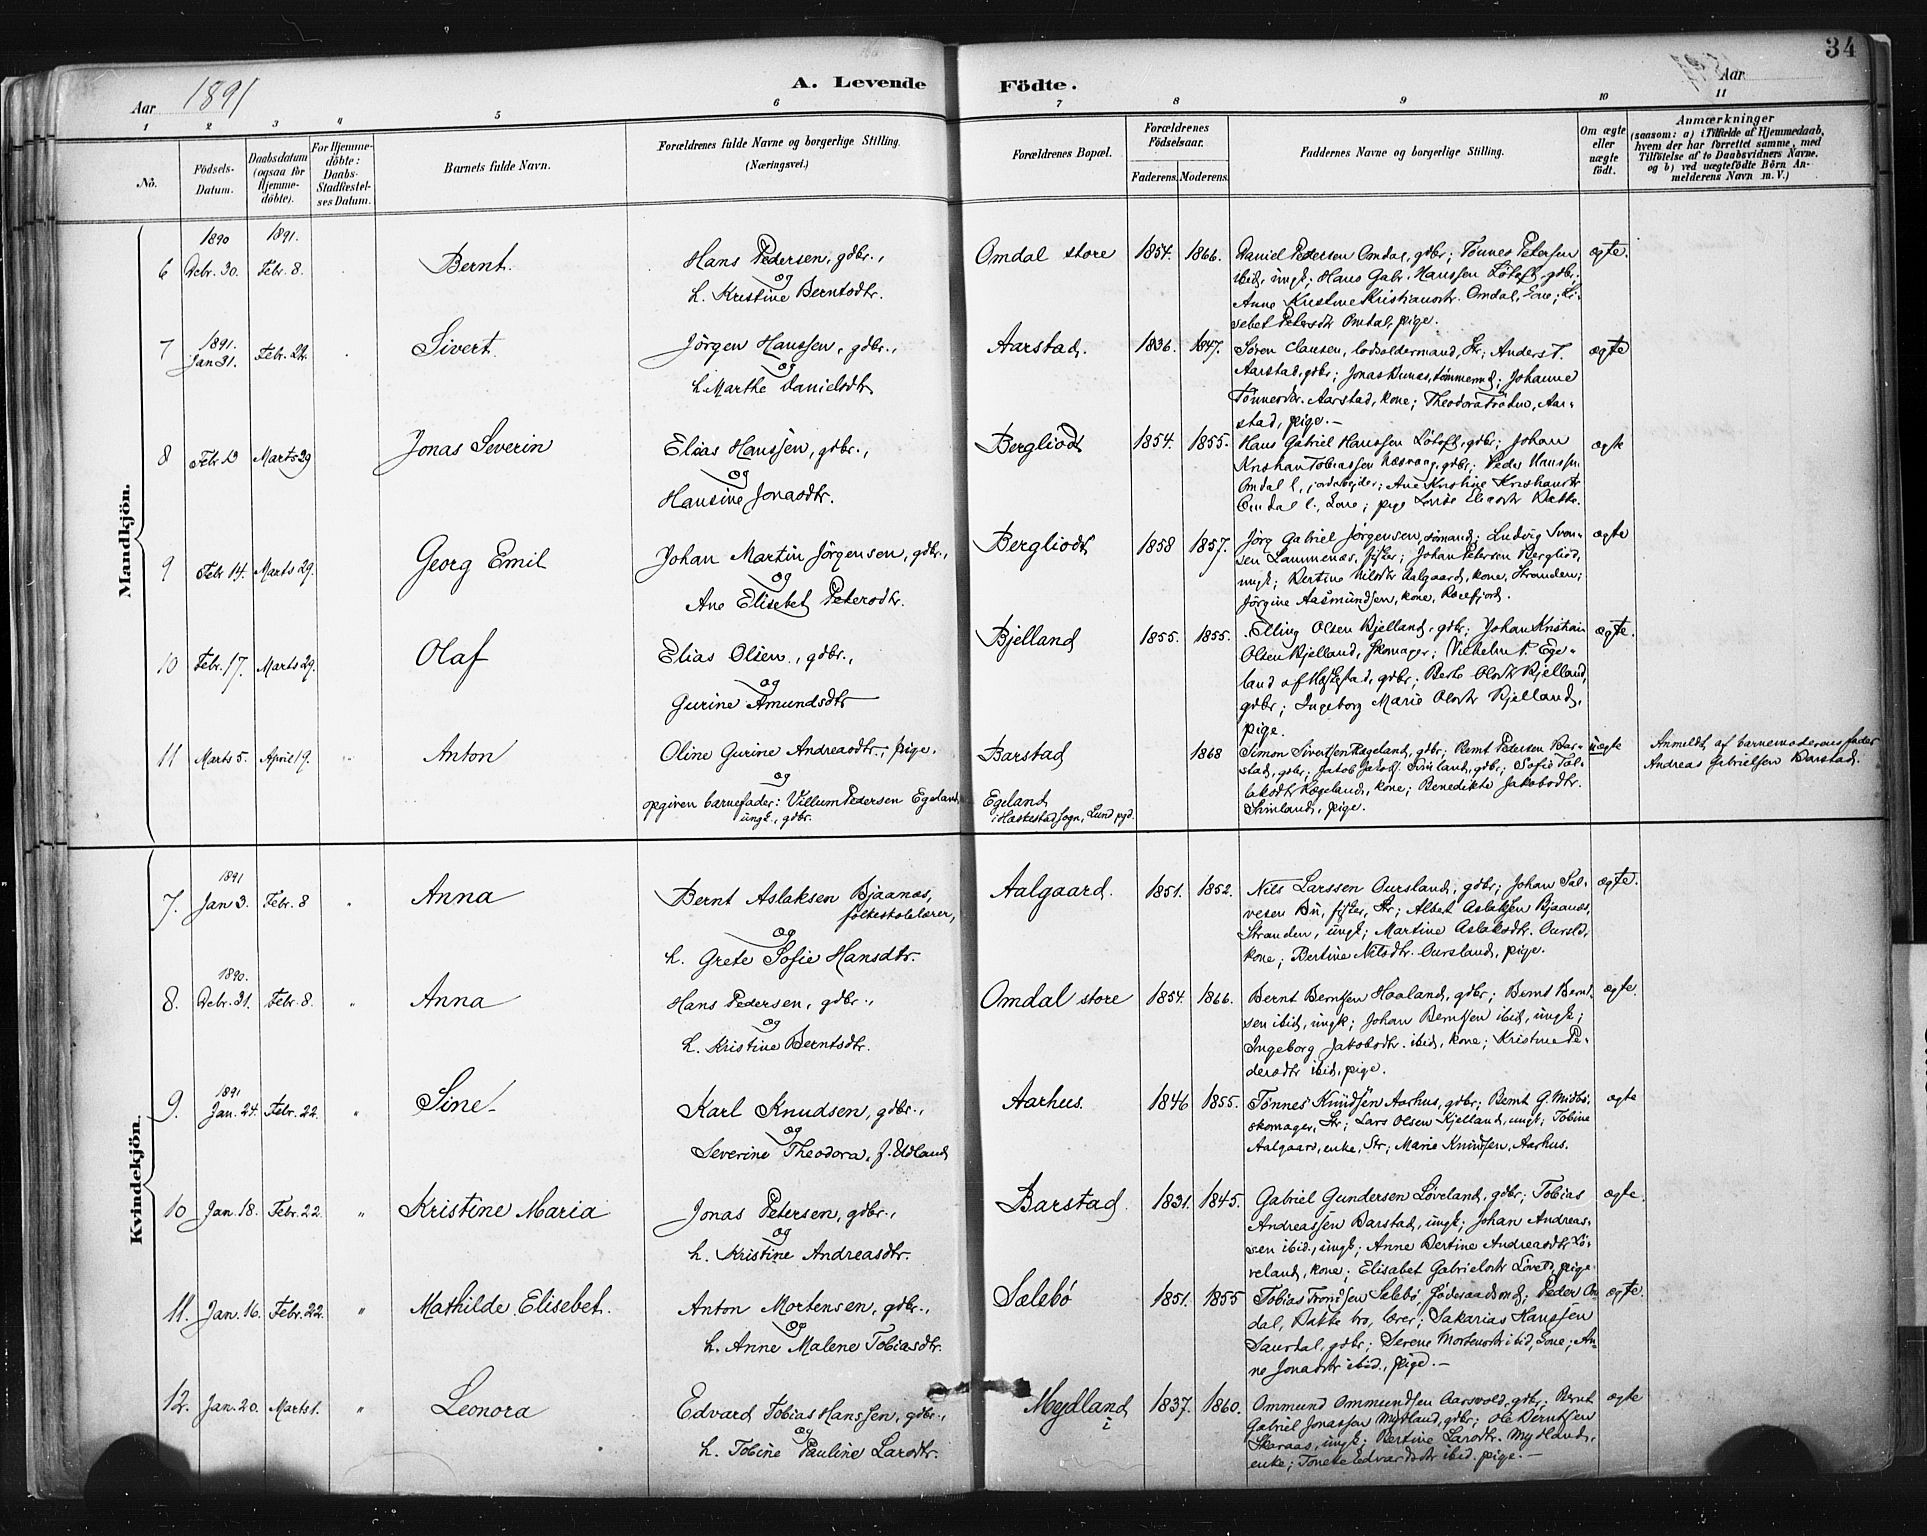 34
Aar 1891
A. Levende Födte.
Aar
1 2 3 4 5 6 7 8 9 10 11
No.
Födsels-Datum.
Daabsdatum (ogsaa for Hjemmedöbte).
For Hjemmedöbte: Daabs-Stadfæstelses Datum.
Barnets fulde Navn.
Forældrenes fulde Navne og borgerlige Stilling. (Næringsvei.)
Forældrenes Bopæl.
Forældrenes Födselsaar.
Faderens. Moderens.
Faddernes Navne og borgerlige Stilling.
Om ægte eller uægte födt.
Anmærkninger
(saasom: a) i Tilfælde af Hjemmedaab, hvem der har forrettet samme, med Tilföielse af to Daabsvidners Navne. og b) ved uægtefödte Börn Anmelderens Navn m. V.)
Mandkjön.
1890 1891.
6 Decbr. 30. Febr. 8. Bernt.
Hans Pedersen, gdbr.,
og
h. Kristine Berntsdtr.
Omdal store 1854. 1866.
Daniel Pedersen Omdal, gdbr; Tønnes Petersen
ibid, ungk; Hans Gabr. Hanssen Løtoft, gdbr;
Anne Kristine Kristiansdtr. Omdal, kone; Li-
sebet Petersdtr Omdal, pige.
ægte.
1891.
7 Jan 31. Febr. 22. Sivert.
Jörgen Hanssen, gdbr.,
og
h. Marthe Danielsdtr
Aarstad. 1836. 1847.
Sören Clausen, lodsoldermand, Str; Anders T.
Aarstad, gdbr; Jonas Runas, tømmermd; Johanne
Tönnesdtr. Aarstad, kone; Theodora Aar-
stad, pige.—
ægte
8 Febr 13 Marts 29 Jonas Severin
Elias Hanssen, gdbr.,
og
Hansine Jonasdtr.
Bergliodt 1854. 1855.
Hans Gabriel Hanssen Løtoft, gdbr; Johan
Kristian Tobiassen gdbr; Peder Hanssen
Omdal l., jordarbejder; Ane Kristine Kristiansdtr
Omdal l., kone; pige Lovise Eliasdtr Bakke.
ægte
9 Febr 14. Marts 29. Georg Emil
Johan Martin Jörgensen, gdbr.,
og
Ane Elisebet Petersdtr.
Bergliodt 1858 1857.
Jörg Gabriel Jörgensen, sömand; Ludvig Svend-
sen Lammenæs, fisker; Johan Petersen Bergliod,
ungk; Bertine Nilsdtr Aalgaard, kone, Stranden;
Jörgine Aasmundsen, kone, Rækefjord.
ægte
10 Febr. 17. Marts 29. Olaf
Elias Olsen, gdbr.,
og
Gurine Amundsdtr
Bjelland 1855. 1855.
Elling Olsen Bjelland, gdbr; Johan Kristian
Olsen Bjelland, skomager; Vilhelm P. Ege-
land af Hæskestad, gdbr; Berte Olsdtr Bjelland,
gdbr; Ingeborg Marie Olsdtr Bjelland,
pige.
ægte.
11 Marts 5. April 19. " Anton
Oline Gurine Andreasdtr, pige.
og
opgiven barnefader: Villum Pedersen Egeland,
ungk., gdbr.
Barstad 1868
Egeland
i Hæskestad sogn, Lund pgd.
Simon Sivertsen Rægeland, gdbr; Bernt Pedersen Bar-
stad, gdbr; Jakob Jakobs. Skinland, gdbr; Sofie Tol-
laksdtr Rægeland, kone; Benedikte Jakobsdtr.
Skinland, pige.
uægte
Anmeldt af barnemoderens fader
Andreas Gabrielsen Barstad.
Kvindekjön.
1891
7. Jan 3. Febr. 8 " Anna
Bernt Aslaksen Bjaanæs,
folkeskolelærer,
og
h. Grete Sofie Hansdtr.
Aalgaard. 1851. 1852.
Nils Larssen Oursland, gdbr; Johan Sal-
vesen Bu, fisker, Str; Albert Aslaksen Bjaanæs,
Stranden, ungk; Martine Aslaksdtr. Oursld,
kone; Bertine Nilsdtr. Oursland, pige.
ægte.
1890.
8. Decbr. 31. Febr. 8. " Anna
Hans Pedersen, gdbr.,
og
h. Kristine Berntsdtr.
Omdal store 1854. 1866.
Bernt Berntsen Haaland, gdbr; Bernt Bernt-
sen ibid, ungk; Johan Berntsen ibid, ungk;
Ingeborg Jakobsdtr. ibid, kone; Kristine Pe-
dersdtr ibid, pige.
ægte.
1891
9. Jan. 24. Febr. 22. " Sine
Karl Knudsen, gdbr.,
og
Severine Theodora, f. Udland
Aarhus. 1846 1855.
Tönnes Knudsen Aarhus, gdbr; Bernt G. Midbø
skomager, Str; Lars Olsen Kjelland, ungk; Tobine
Aalgaard, enke, Str; Marie Knudsen, Aarhus.
ægte
10 Jan. 18. Febr. 22 " Kristine Maria
Jonas Petersen, gdbr.,
og
h. Kristine Andreasdtr.
Barstad. 1831. 1845.
Gabriel Gundersen Løveland, gdbr; Tobias
Andreassen Barstad, ungk; Johan Andreas-
sen ibid., ungk; Anne Bertine Andreasdtr Lø-
veland, kone; Elisabet Gabrielsdtr Løveld, pige
ægte.
11. Jan. 16. Febr. 22. " Mathilde Elisebet.
Anton Mortensen, gdbr.,
og
h. Anne Malene Tobiasdtr.
Salebö 1851. 1855
Tobias Trondsen Salebö føderaadsmd; Peder Om-
dal, Bakke bro, lærer; Sakarias Hanssen
Saurdal, gdbr; Serene Mortensdtr ibid, kone; An-
ne Jonasdtr ibid., pige.—
ægte.
12. Jan. 20. Marts 1. " Leonora
Edvard Tobias Hanssen, gdbr.,
og
h. Tobine Pauline Larsdtr.
Mydland i 1837. 1860.
Ommund Ommundsen Aarsvold, gdbr; Bernt
Gabriel Jonassen Mydland, gdbr; Ole Berntsen
Skaraas, ungk; Bertine Larsdtr. Mydland,
enke; Tonette Edvardsdtr ibid. pige.—
ægte